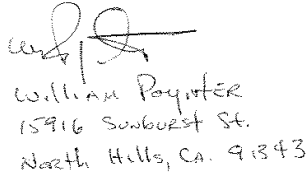 William Poynter
15916 Sunburst St.
North Hills, CA. 91343